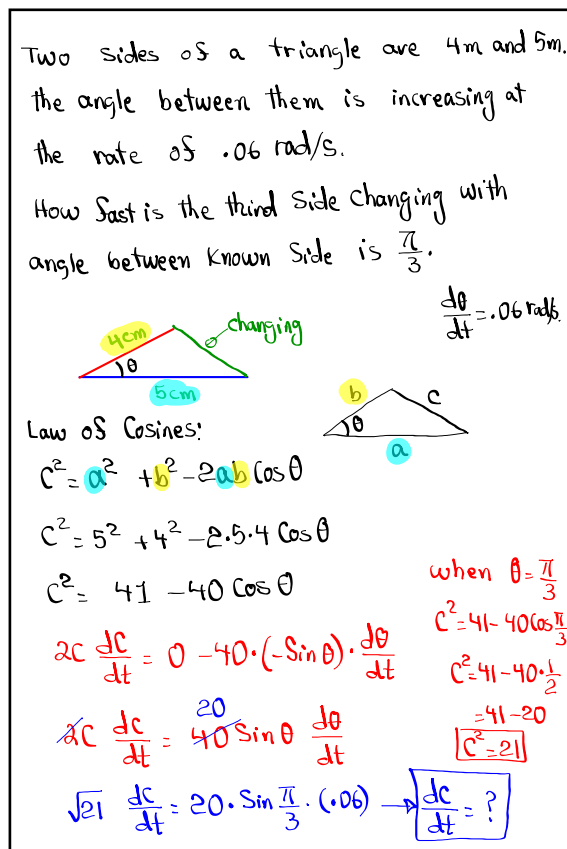 Two sides of a triangle are 4m and 5m.
the angle between them is increasing at
the rate of .06 rad/s.
How fast is the third side changing with
angle between known side is π/3.
dθ/dt = .06 rad/s.
4cm
changing
θ
5cm
b
c
θ
a
Law of Cosines:
C² = a² + b² - 2ab Cos θ
C² = 5² + 4² - 2·5·4 Cos θ
C² = 41 - 40 Cos θ
2C dC/dt = 0 - 40·(-Sin θ)· dθ/dt
20
2C dC/dt = 40 Sin θ dθ/dt
√21 dC/dt = 20· Sin π/3 ·(.06) → dC/dt = ?
when θ = π/3
C² = 41 - 40 Cos π/3
C² = 41 - 40· 1/2
= 41 - 20
C² = 21